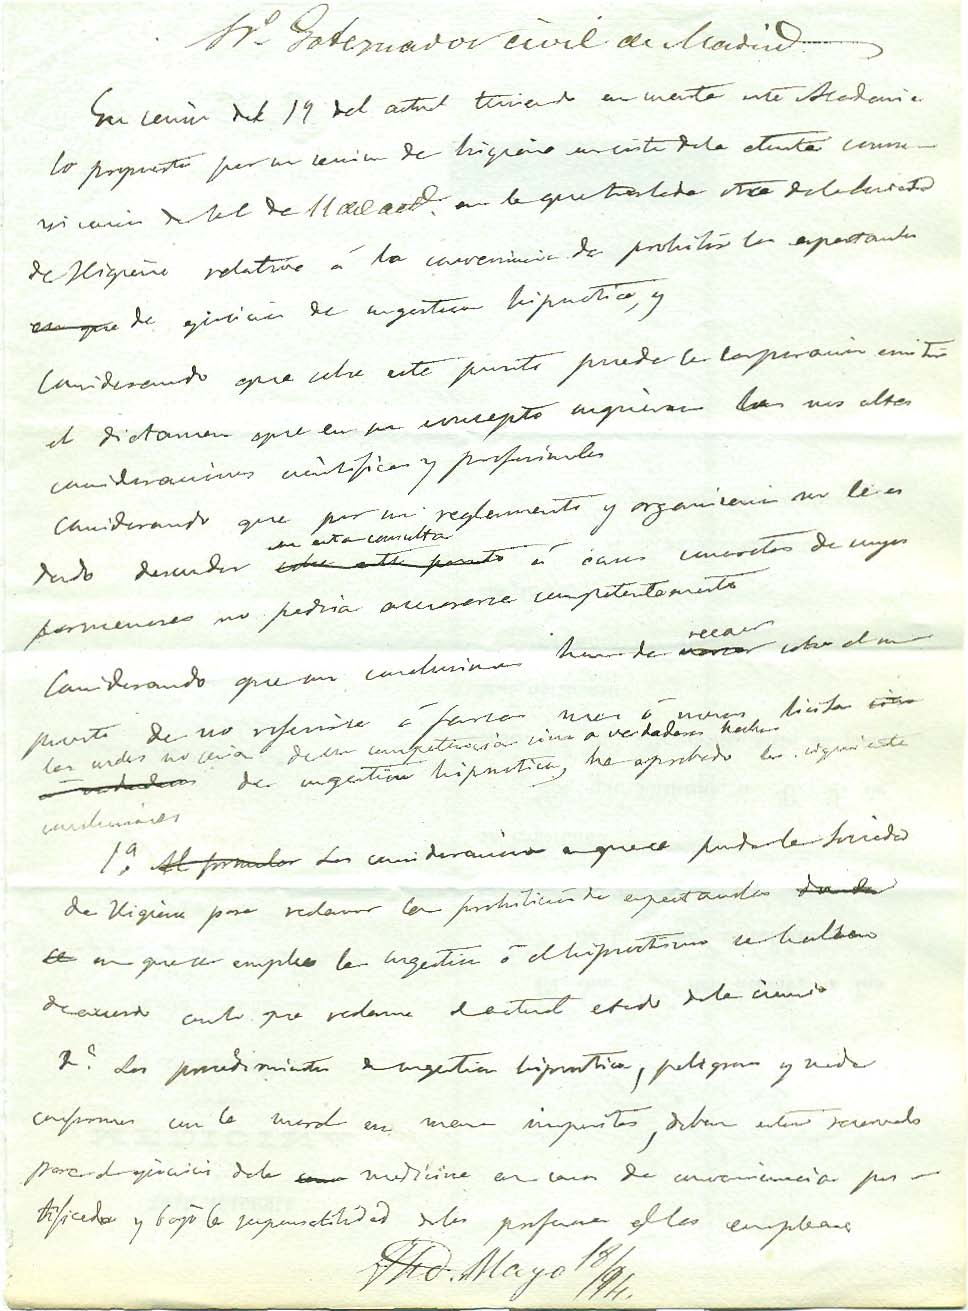 Sr. Gobernador civil de Madrid
En sesion del 19 del actual teniendo en cuenta esta Academia
lo propuesto por su seccion de higiene en vista de la atenta comu-
nicacion de V.E. de 11 del act.l en la que traslada otra de la Sociedad
de Higiene relativa á la conveniencia de prohibir los espectaculos
en que de ejercicios de sugestion hipnotica, y
Considerando que sobre este punto puede la Corporacion emitir
el dictamen que en su concepto sugieran las mas altas
consideraciones cientificas y profesionales
Considerando que por su reglamento y organizacion no le es
en esta consulta
dado descender sobre este punto á casos concretos de cuyos
pormenores no podria asesorarse competentemente
recaer
Considerando que sus conclusiones han de sobre el su-
puesto de no referirse á farsas mas ó menos licitas sino
las cuales no seria de su competencia sino a verdaderos hechos
á verdaderos de sugestion hipnotica, ha aprobado las siguientes
conclusiones
1.ª Al formular Las consideraciones en que se funda la Sociedad
de Higiene para reclamar la prohibicion de espectaculos donde
se en que se emplee la sugestion ó el hipnotismo se hallan
de acuerdo con lo que reclama el actual estado de la ciencia
2.ª Los procedimientos de sugestion hipnotica, peligrosos y nada
conformes con la moral en manos imperitas, deben estar reservados
para el ejercicio de la medicina en casos de conveniencia jus-
tificada y bajo la responsabilidad de los profesores q.e los emplean
Fho. Mayo 18/94.